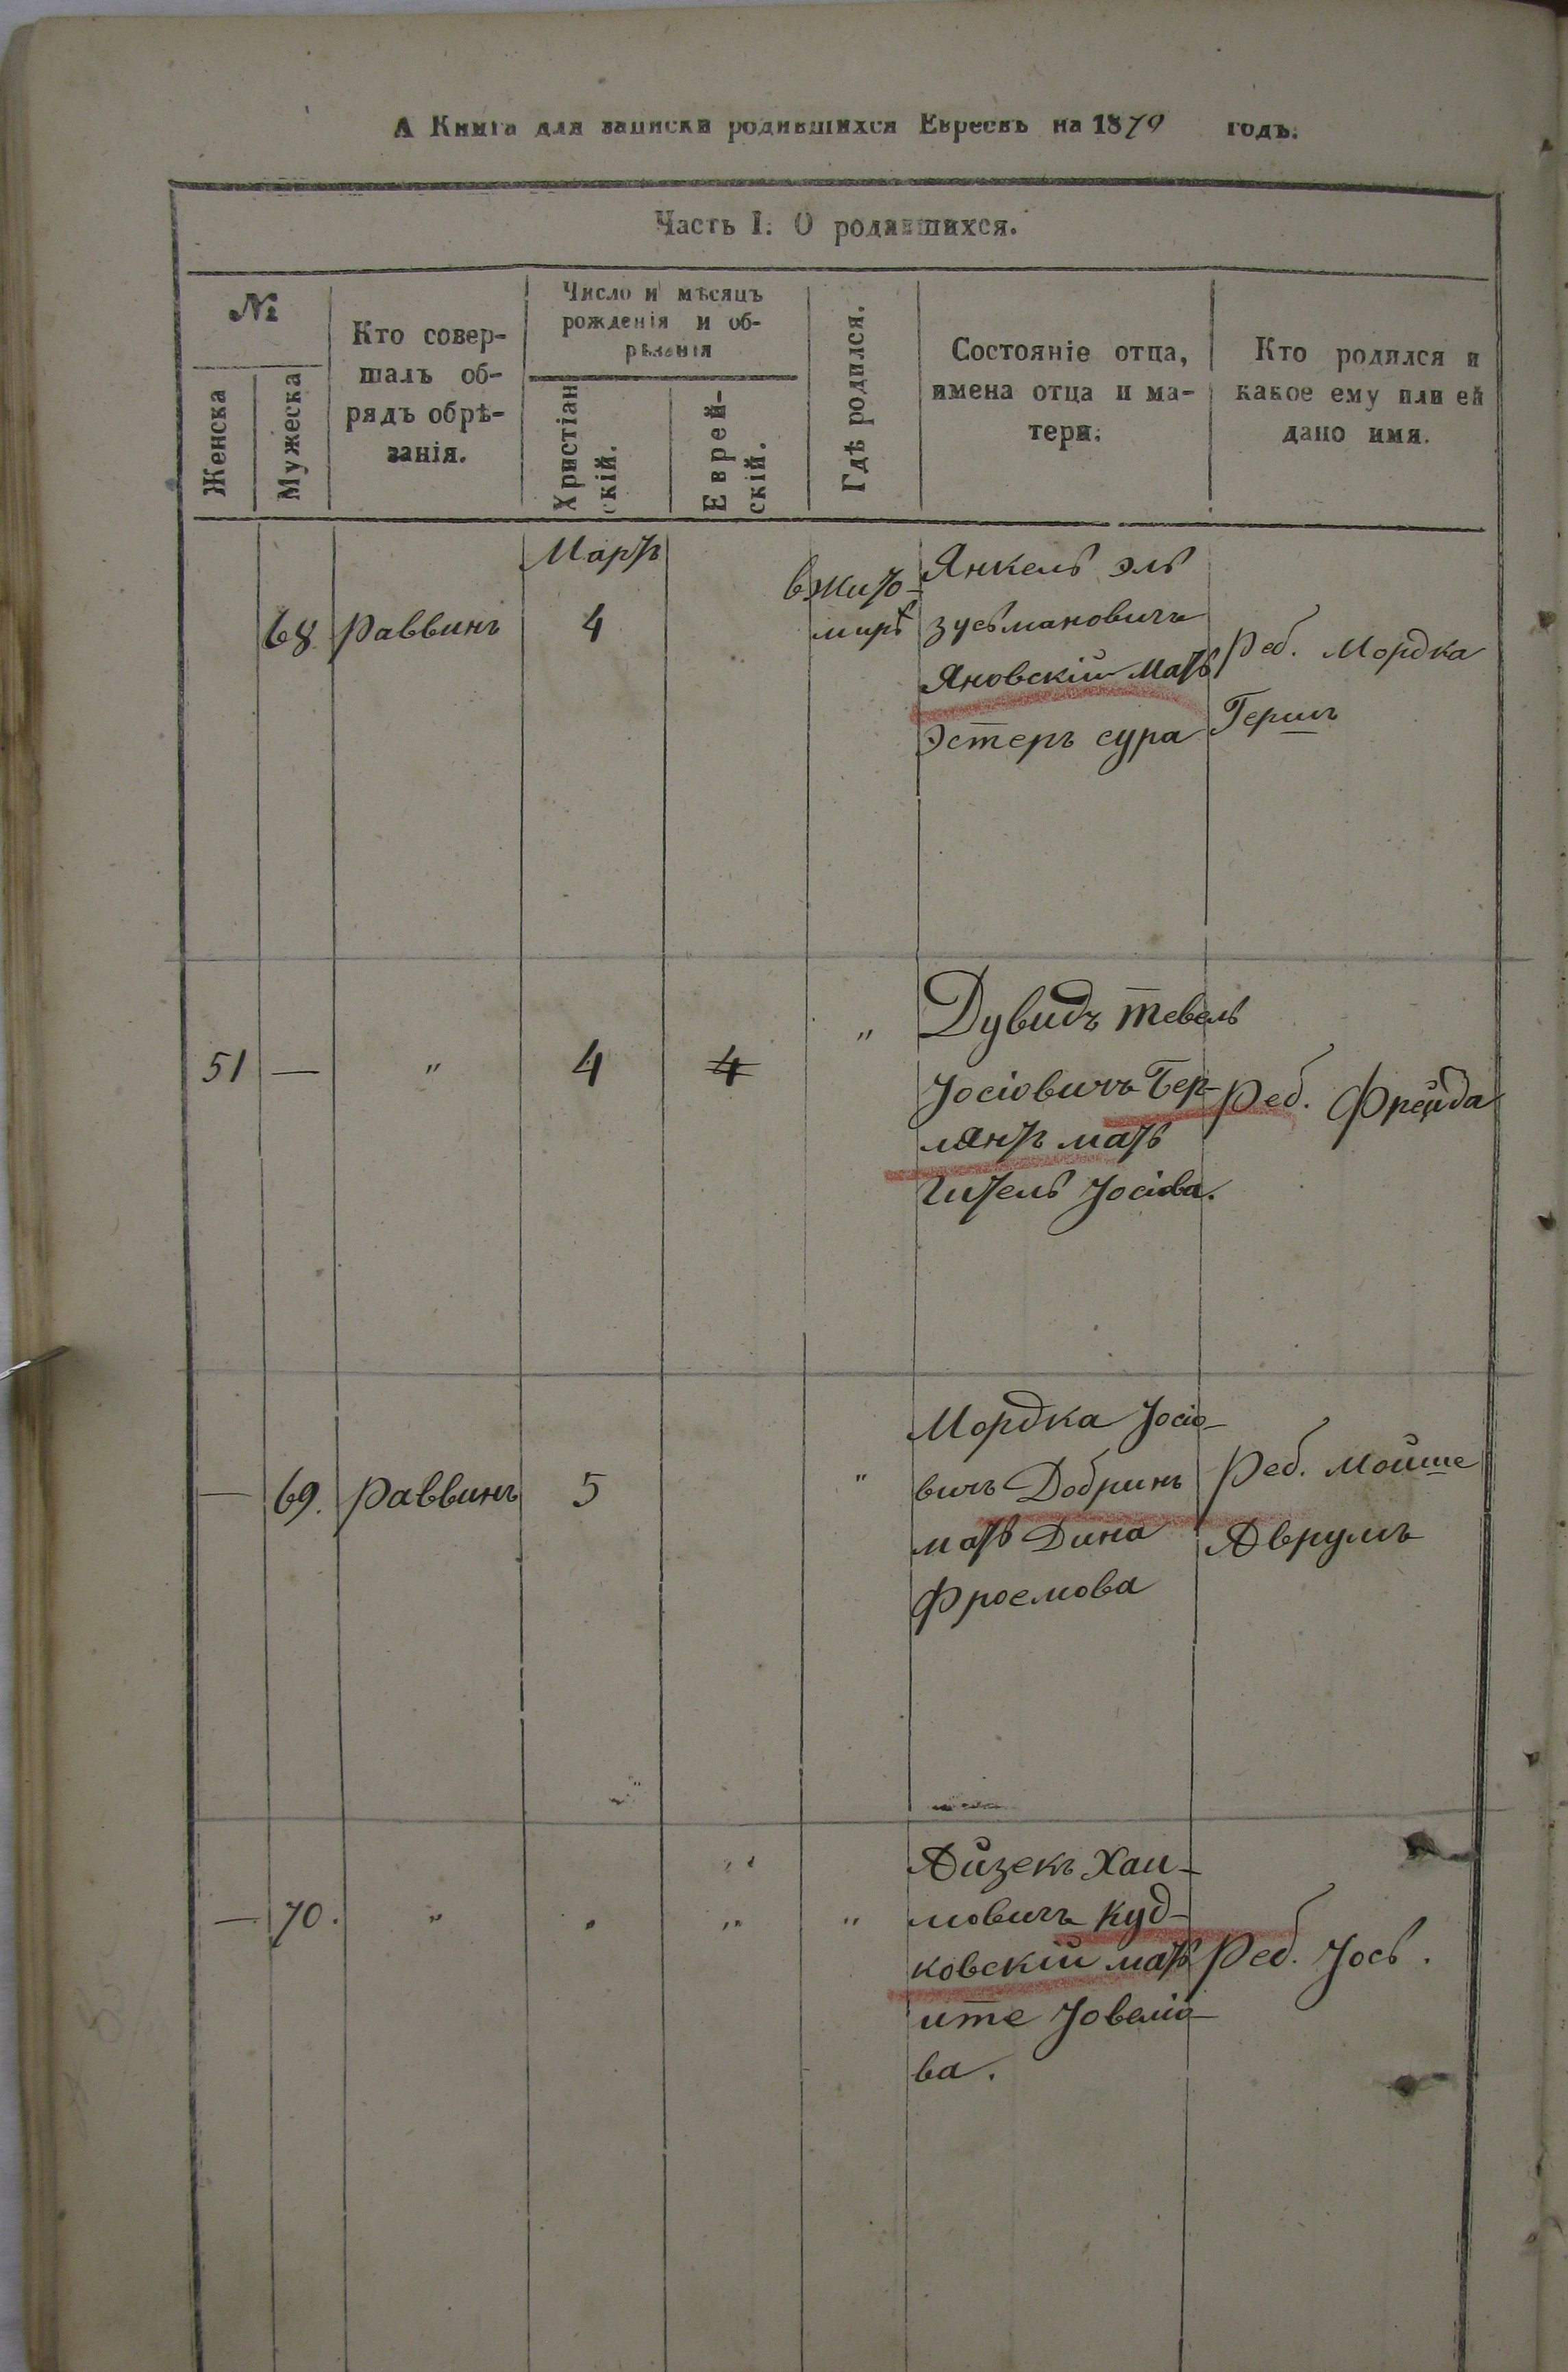 А Книга для записки родившихся Евреевъ на 1879 годъ.
Часть I. О родившихся.
№
Женска
Мужеска
Кто совер-
шалъ об-
рядъ обрѣ-
занія.
Число и мѣсяцъ
рожденія и об-
рѣзанія
Христіан
скій.
Еврей-
скій.
Гдѣ родился.
Состояніе отца,
имена отца и ма-
тери.
Кто родился и
какое ему или ей
дано имя.
Мартъ
68
раввинъ
4
вжито-
мирѣ
Янкель эль
зусьмановичъ
Яновскій мать
Эстеръ сура
Реб. Мордка
Гершъ
51
—
"
4
4
"
Дувидъ тевель
Іосіовичъ Бер-
лянтъ мать
Гитель Іосіова.
Реб. Фрейда
—
69.
раввинъ
5
"
Мордка Іосіо-
вичъ Добринъ
мать Дина
Фроемова
Реб. Мойше
Аврумъ
—
70.
"
"
"
"
Айзекъ Хаи-
мовичъ Куд-
ковскій мать
ите Іовеліо-
ва.
Реб. Іось.